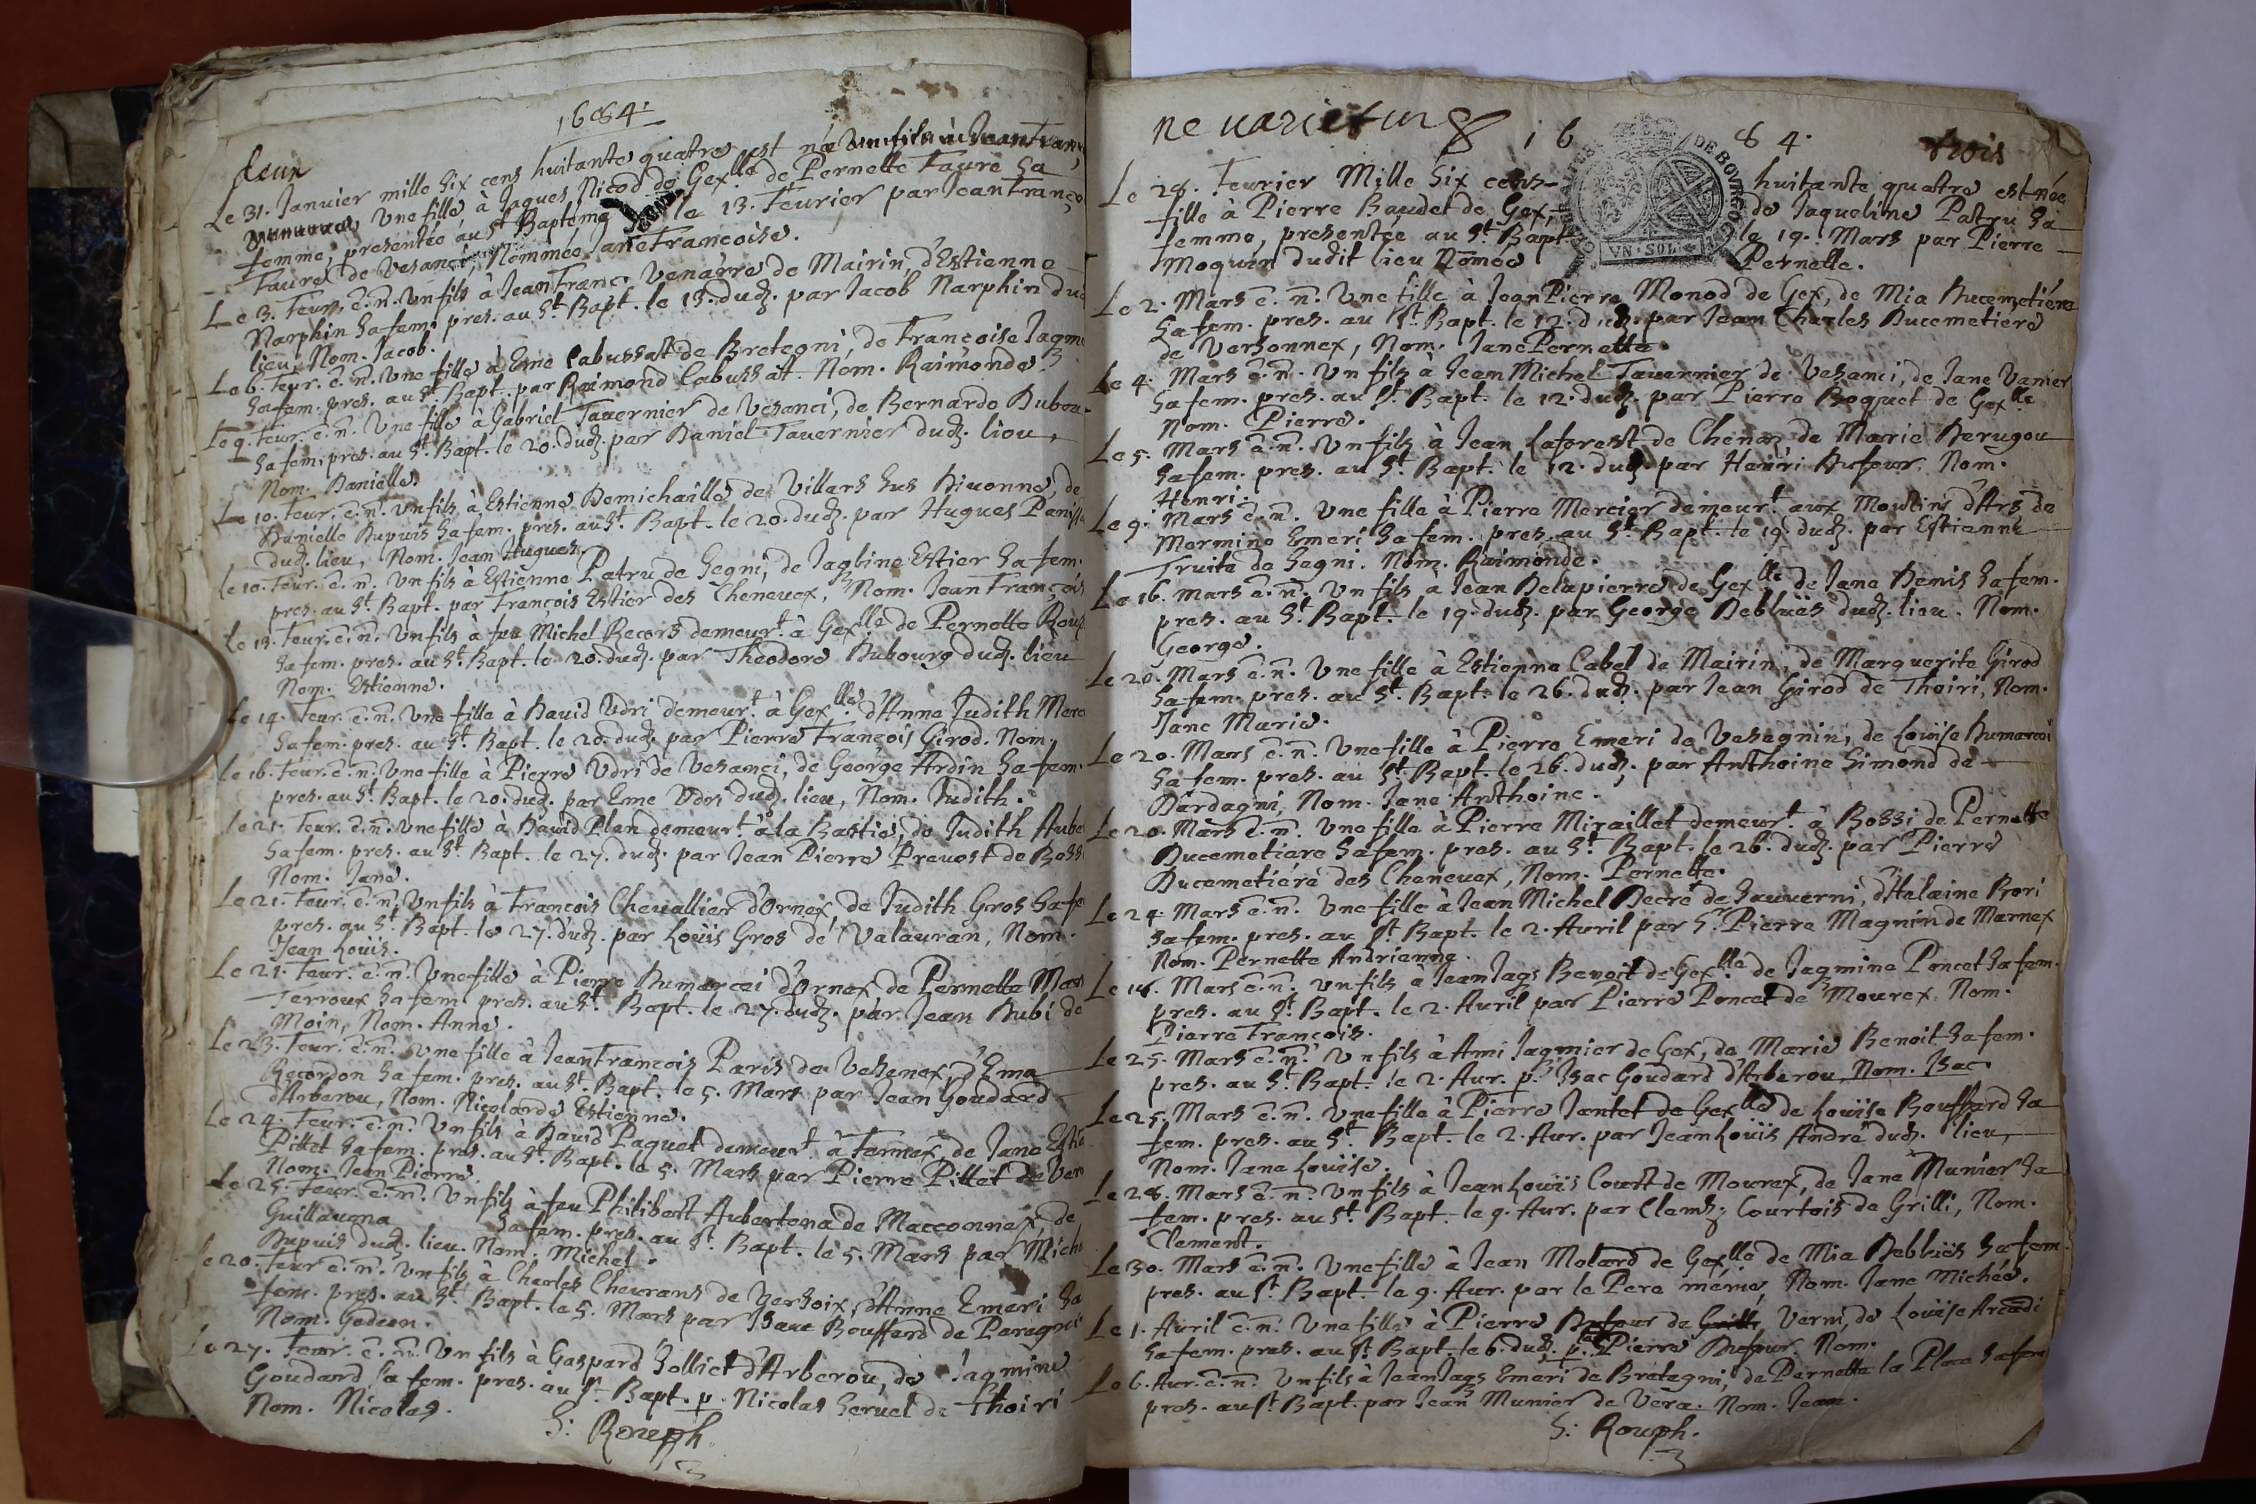 1684.
deux
Le 31. Janvier mille six cens huitante quatre est né un fils à Jean Fran
une fille, à Jaques Nicod de Gex.lle de Pernette Faure sa
femme, presentée au St Bapteme le 13. Feurier par Jean Franço
Faure de Vesanci, Nommée Jane Francoise.
Le 3. Feur. e. n. Un fils à Jean Franc. Venarre de Mairin, d'Estienne
Narphin sa fem. pres. au St Bapt. le 13. dud. par Jacob Narphin dud
lieu, Nom. Jacob.
Le 6. Feur. e. n. Une fille à Eme Cabussat de Bretegni, de Françoise Jaqm
sa fem. pres. au St Bapt. par Raimond Cabussat. Nom. Raimonde.
Le 9. Feur. e. n. Une fille à Gabriel Tauernier de Vesanci, de Bernarde Dubou-
sa fem. pres. au St. Bapt. le 20. dud. par Daniel Tauernier dud. lieu,
Nom. Danielle.
Le 10. Feur. e. n. Un fils à Estienne Demichaille de Villars sus Diuonne, de
Danielle Dupuis sa fem. pres. au St. Bapt. le 20. dud. par Hugues Paniss
dud. lieu, Nom. Jean Hugues.
Le 10. Feur. e. n. Un fils à Estienne Patru de Segni, de Jaqline Estier sa fem.
pres. au St. Bapt. par François Estier des Cheneuex, Nom. Jean François
Le 13. Feur. e. n. Un fils à feu Michel Recors demeurt à Gex.lle de Pernette Roup
sa fem. pres. au St. Bapt. le 20. dud. par Theodore Dubourg dud. lieu
Nom. Estienne.
Le 14. Feur. e. n. Une fille à Dauid Vdri demeurt à Gex.lle d'Anne Judith Merc
sa fem. pres. au St. Bapt. le 20. dud. par Pierre François Girod. Nom.
Le 16. Feur. e. n. Une fille à Pierre Vdri de Vesanci, de George Ardin sa fem.
pres. au St. Bapt. le 20. dud. par Eme Vdri dud. lieu, Nom. Judith.
Le 21. Feur. e. n. Une fille à Dauid Plan demeurt à la Bastie, de Judith Aube
sa fem. pres. au St. Bapt. le 27. dud. par Jean Pierre Preuost de Boss
Nom. Jane.
Le 21. Feur. e. n. Un fils à François Cheuallier d'Ornex, de Judith Gros sa fe
pres. au St. Bapt. le 27. dud. par Louis Gros de Valauran, Nom.
Jean Louis.
Le 21. Feur. e. n. Une fille à Pierre Dumarcei d'Ornex de Pernette Mar
Terroux sa fem. pres. au St. Bapt. le 27. dud. par Jean Dubi de
Moin, Nom. Anne.
Le 23. Feur. e. n. Une fille à Jean Francois Paris de Vesenex, d'Ema
Recordon sa fem. pres. au St. Bapt. le 5. Mars par Jean Goudard
d'Arberou, Nom. Nicolarde Estienne.
Le 24. Feur. e. n. Un fils à Dauid Paquet demeurt à Fernex, de Jane Estie
Pittet sa fem. pres. au St. Bapt. le 5. Mars par Pierre Pittet de Ver
Nom. Jean Pierre.
Le 25. Feur. e. n. Un fils à feu Philibert Aubertena de Macconnex, de
Guillauma sa fem. pres. au St. Bapt. le 5. Mars par Miche
Dupuis dud. lieu. Nom. Michel.
Le 20. Feur e. n. Un fils à Charles Cheurans de Versoix, d'Anne Emeri sa
fem. pres. au St. Bapt. le 5. Mars par Isaac Bouffard de Peregni
Nom. Gedeon.
Le 27. Feur. e. n. Un fils à Gaspard Solliet d'Arberou, de Jaqmine
Goudard sa fem. pres. au St Bapt. p. Nicolas Seruel de Thoiri
Nom. Nicolas.
S: Rouph.
ne varietur 1684.
trois
GENERALITE DE BOVRGOGNE
VN·SOL
Le 28. Feurier Mille six cens huitante quatre est née
fille à Pierre Baudet de Gex, de Jaqueline Patru sa
femme, presentée au St. Bapt le 19. Mars par Pierre
Moquin dudit lieu Nomée Pernette.
Le 2. Mars e. n. Une fille à Jean Pierre Monod de Gex, de Mia Ducemetiére
sa fem. pres. au St. Bapt. le 12. dud. par Jean Charles Ducemetiere
de Versonnex, Nom. Jane Pernette.
Le 4. Mars e. n. Un fils à Jean Michel Tauernier de Vesanci, de Jane Vanier
sa fem. pres. au St. Bapt. le 12. dud. par Pierre Boquet de Gex.lle
Nom. Pierre.
Le 5. Mars e. n. Un fils à Jean Laforest de Chenaz de Marie Derugou
sa fem. pres. au St. Bapt. le 12. dud. par Henri Dufour. Nom.
Henri.
Le 9. Mars e. n. Une fille à Pierre Mercier demeurt aux Moulins d'Ars de
Mermine Emeri sa fem. pres. au St. Bapt. le 19. dud. par Estienne
Truita de Segni. Nom. Raimonde.
Le 16. Mars e. n. Un fils à Jean Delapierre de Gex.lle de Jane Denis sa fem.
pres. au St. Bapt. le 19. dud. par George Deblüës dud. lieu. Nom.
George.
Le 20. Mars e. n. Une fille à Estienne Cabet de Mairin, de Marguerite Girod
sa fem. pres. au St. Bapt. le 26. dud. par Jean Girod de Thoiri, Nom.
Jane Marie.
Le 20. Mars e. n. Une fille à Pierre Emeri de Vesegnin, de Louise Dumarcei
sa fem. pres. au St. Bapt. le 26. dud. par Anthoine Simond de
Dardagni, Nom. Jane Anthoine.
Le 20. Mars e. n. Une fille à Pierre Miraillet demeurt à Bossi de Pernette
Ducemetiare sa fem. pres. au St. Bapt. le 26. dud. par Pierre
Ducemetiére des Cheneuex, Nom. Pernette.
Le 24. Mars e. n. Une fille à Jean Michel Decré de Sauuerni, d'Helaine Rori
sa fem. pres. au St. Bapt. le 2. Auril par Sr. Pierre Magnin de Marnex
Nom. Pernette Andrienne.
Le 18. Mars e. n. Un fils à Jean Jaqs Benoit de Gex.lle de Jaqmine Poncet sa fem.
pres. au St. Bapt. le 2. Auril par Pierre Poncet de Mourex, Nom.
Pierre François.
Le 25. Mars e. n. Un fils à Ami Jaqmier de Gex, de Marie Benoit sa fem.
pres. au St. Bapt. le 2. Aur. p. Isac Goudard d'Arberou, Nom. Isac.
Le 25. Mars e. n. Une fille à Pierre Jantet de Gex.lle de Louise Bouffard sa
fem. pres. au St. Bapt. le 2. Aur. par Jean Louis André dud. lieu,
Nom. Jane Louïse.
Le 28. Mars e. n. Un fils à Jean Louïs Court de Mourex, de Jane Munier sa
fem. pres. au St. Bapt. le 9. Aur. par Clemt. Courtois de Grilli, Nom.
Clement.
Le 30. Mars e. n. Une fille à Jean Molard de Gex.lle de Mia Deblüës sa fem.
pres. au St. Bapt. le 9. Aur. par le Pere même, Nom. Jane Michée.
Le 1. Auril e. n. Une fille à Pierre Dufour de Grilli Verni, de Louïse Arcadi
sa fem. pres. au St. Bapt. le 6. dud. p. led. Pierre Dufour. Nom.
Le 6. Aur. e. n. Un fils à Jean Jaqs Emeri de Bretegni, de Pernette la Place sa fem
pres. au St. Bapt. par Jean Munier de Vera. Nom. Jean.
S: Rouph.